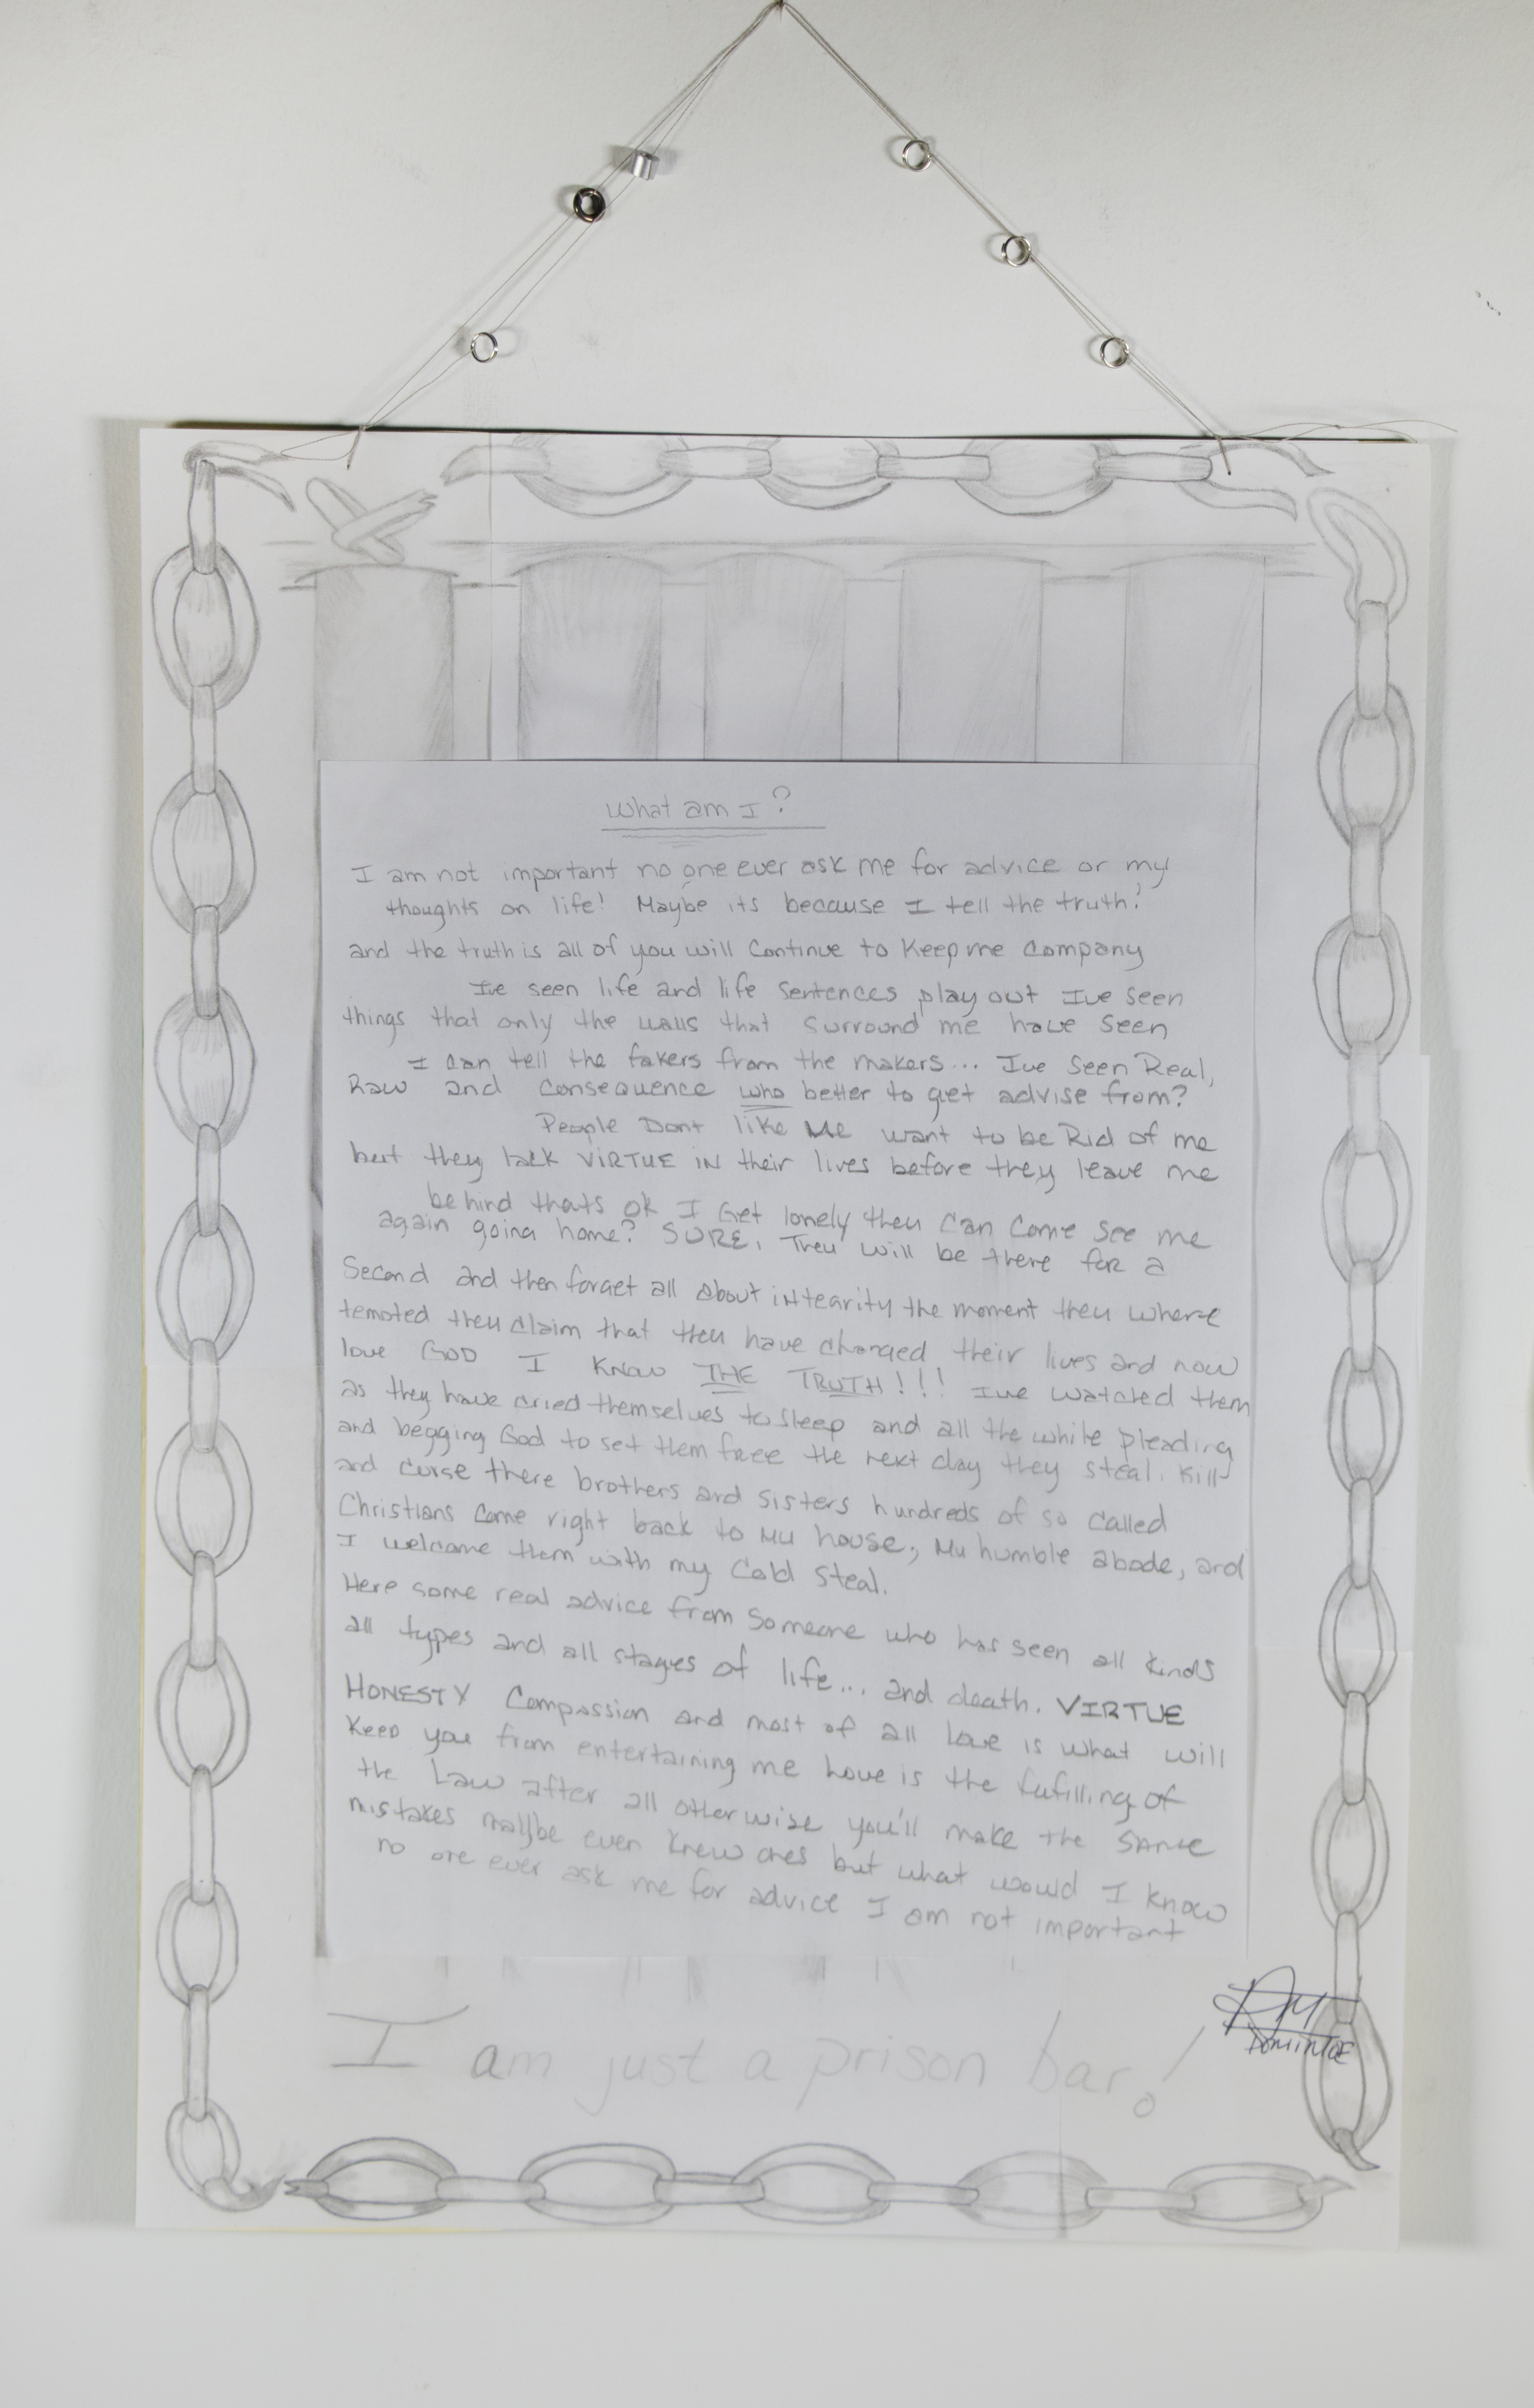 What am I?
I am not important no one ever ask me for advice or my
thoughts on life! Maybe its because I tell the truth!
and the truth is all of you will Continue to Keep me Company
Ive seen life and life sentences play out Ive seen
things that only the walls that surround me have seen
I can tell the fakers from the makers... Ive seen Real,
Raw and Consequence who better to get advise from?
People Dont like Me want to be Rid of me
but they lack VIRTUE IN their lives before they leave me
behind thats ok I Get lonely they Can Come see me
again going home? SURE, They will be there for a
Second and then forget all about integrity the moment they where
tempted they claim that they have changed their lives and now
love GOD I Know THE TRUTH!!! Ive watched them
as they have cried themselves to sleep and all the while pleading
and begging God to set them free the next day they steal, Kill
and curse there brothers and sisters hundreds of so called
Christians come right back to My house, My humble abode, and
I welcome them with my Cold Steal.
Here some real advice from Someone who has seen all kinds
all types and all stages of life... and death. VIRTUE
HONESTY Compassion and most of all Love is what will
Keep you from entertaining me Love is the fufilling of
the Law after all otherwise you'll make the SAME
mistakes maybe even Knew ones but what would I know
no one ever ask me for advice I am not important
I am just a prison bar!